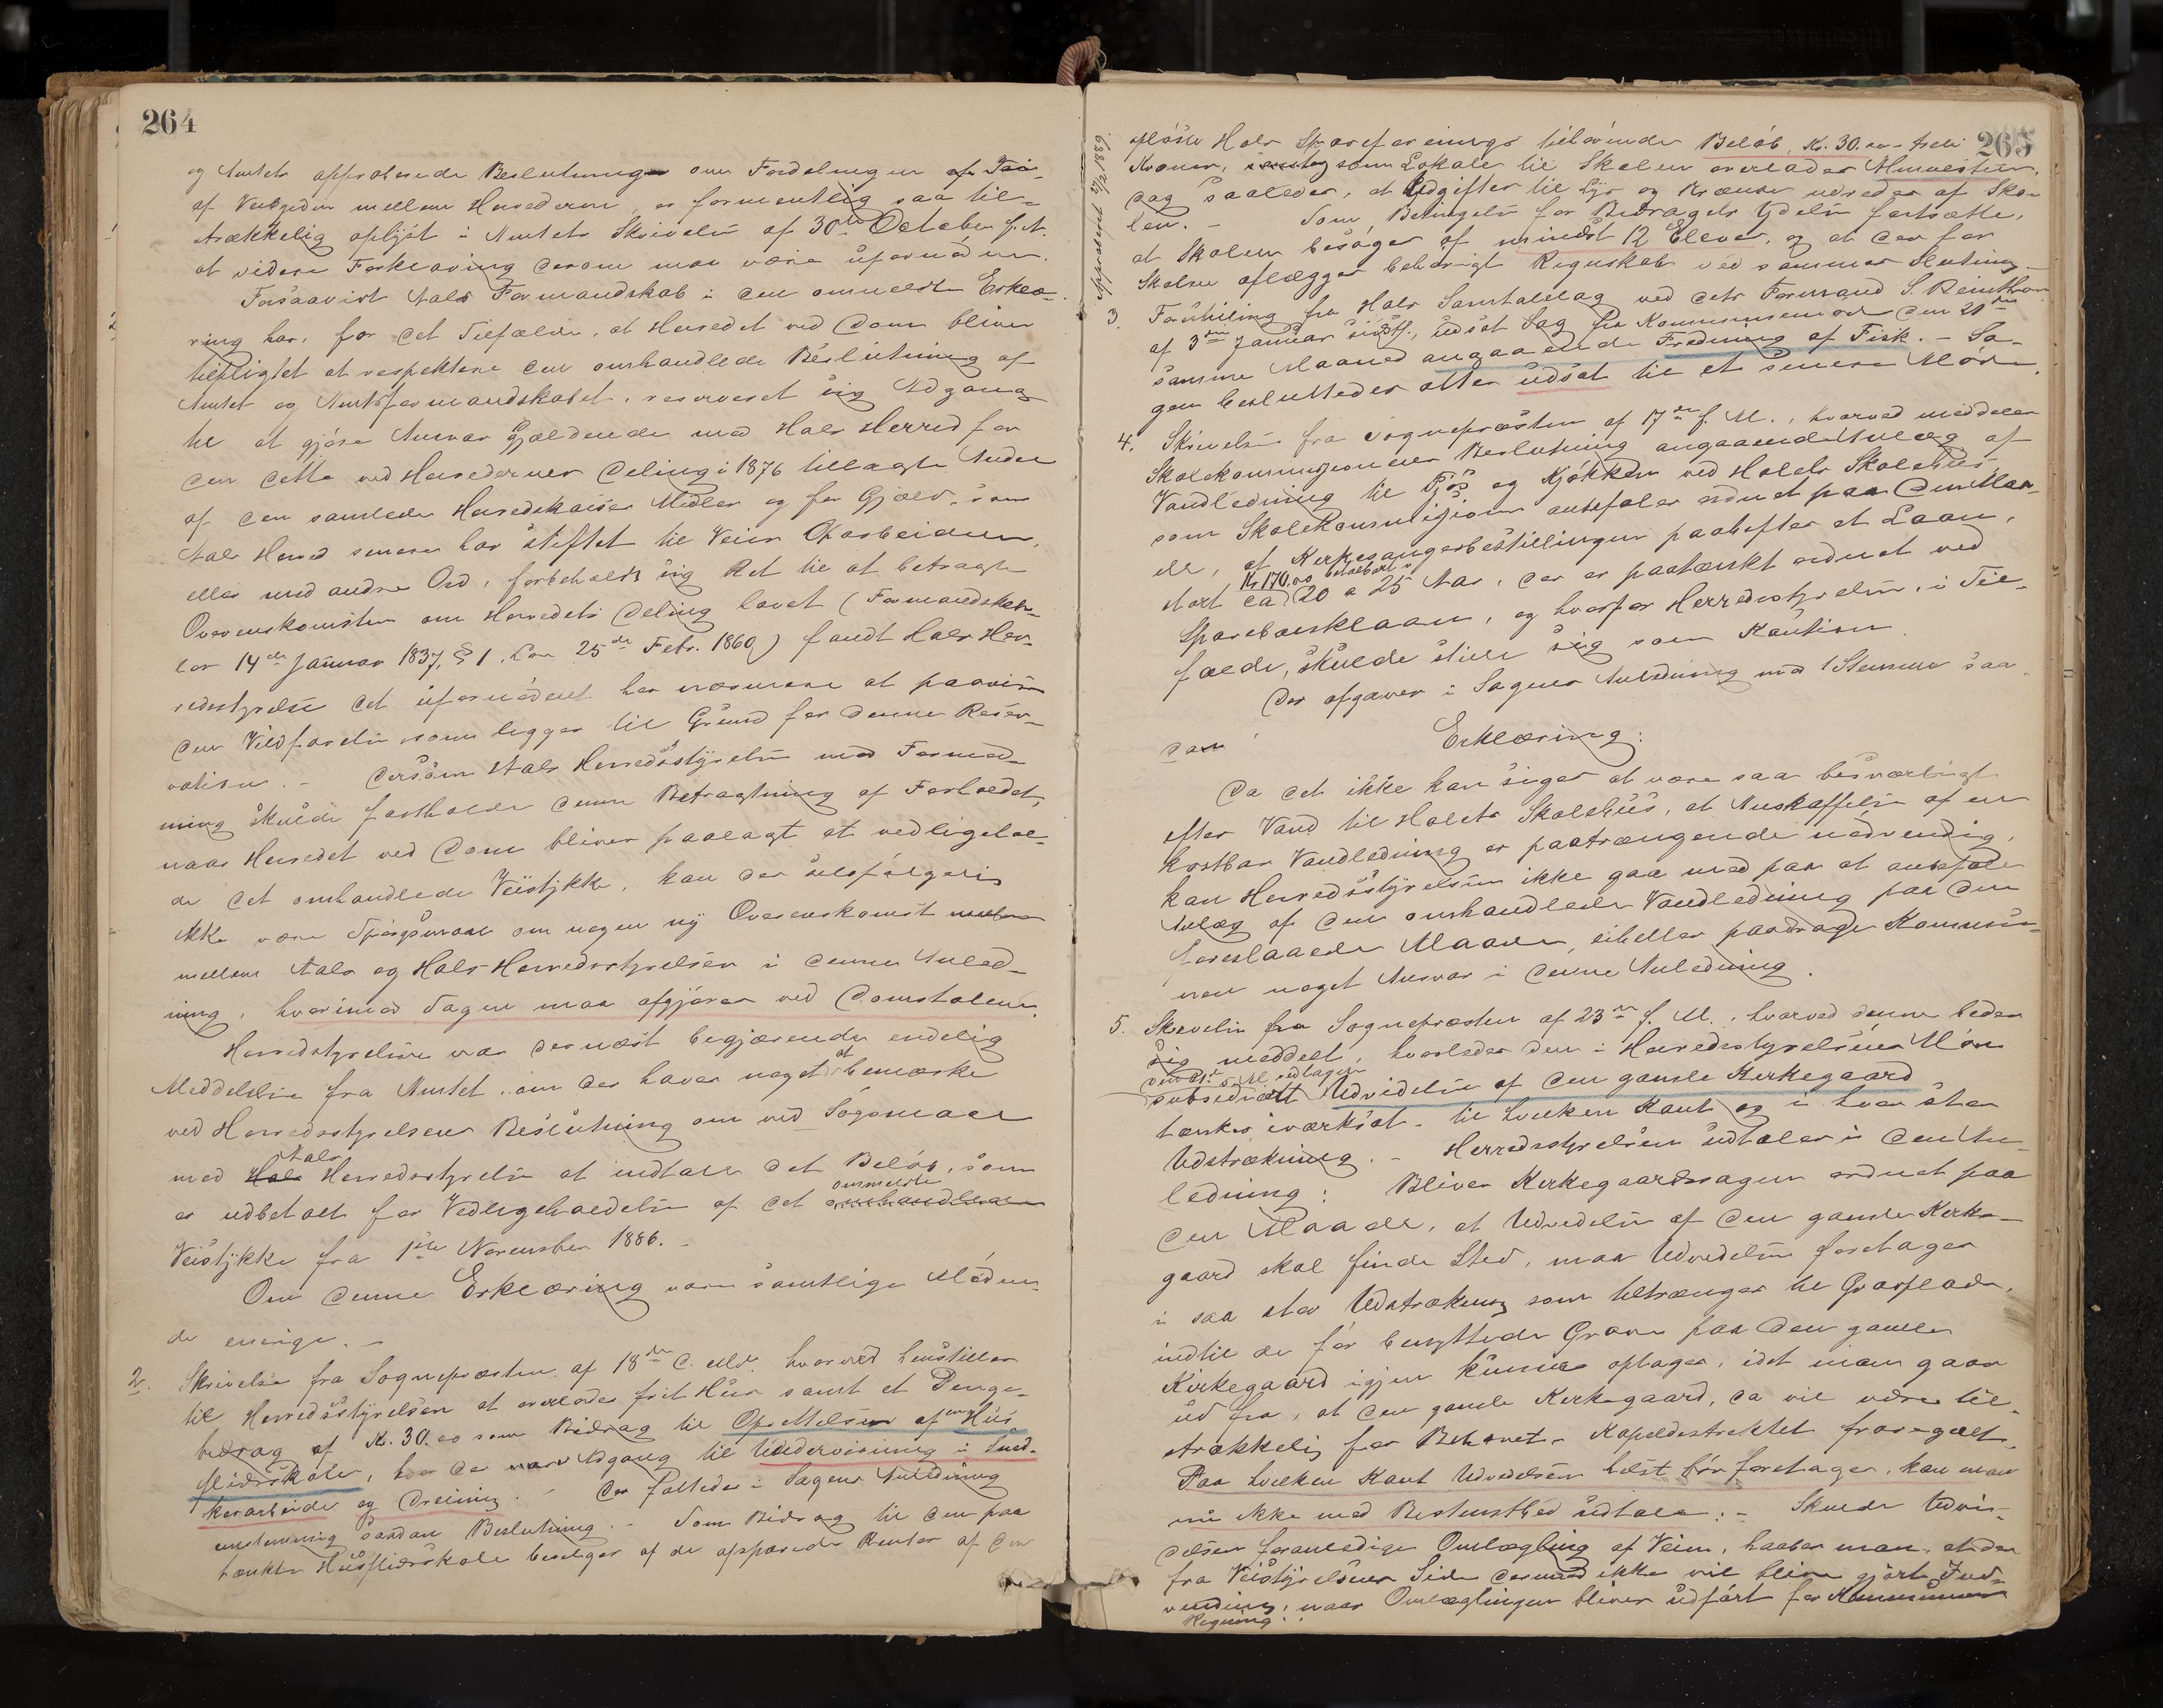 264
og Amtets approberede Beslutning om Fordelingen af
af Veibyrden mellem Herrederne, er formentlig saa til-
strækkelig oplyst i Amtets Skrivelse af 30te October f. A.
at videre Forklaring derom maa være ufornøden.
Forsaavidt Aals Formandskab i den anmeldte Erklæ-
ring har, for det Tilfælde, at Herredet ved Dom bliver
tilpligtet at respektere den omhandlede Beslutning af
Amtet og Amtsformandskabet, reserveret sig Adgang
til at gjøre Ansvar gjældende mod Hols Herred for
den dette ved Herredernes Deling i 1876 tillagte Andel
af den samlede Herredskasses Midler og for Gjæld, som
Aals Herred senere har stiftet til Veies Oparbeidelse,
eller med andre Ord, forbeholdt sig Ret til at betragte
Overenskomsten om Herredets Deling lovet (Formandskabs-
lov 14de Januar 1837, § 1, Lov 25de Febr. 1860) fandt Hols Her-
redsstyrelse det ufornødent her nærmere at paavise
den Vildfarelse som ligger til Grund for denne Reser-
vation. - Dersom Aals Herredsstyrelse mod Formod-
ning skulde fastholde denne Betragtning af Forholdet,
naar Herredet ved Dom bliver paalagt at vedligehol-
de det omhandlede Veistykke, kan der selvfølgelig
ikke være Spørgsmaal om nogen ny Overenskomst
mellem Aals og Hols Herredsstyrelser i denne Anled-
ning, hvorimod Sagen maa afgjøres ved Domstolene.
Herredsstyrelsen var dernæst begjærende endelig
Meddelelse fra Amtet, om der haves noget at bemærke
ved Herredsstyrelsens Beslutning om ved Søgsmaal
Aals
med Hols Herredsstyrelse at indtale det Beløb, som
ommeldte
er udbetalt for Vedligeholdelse af det omhandlede
Veistykke fra 1ste November 1886. -
Om denne Erklæring vare samtlige Møden-
de enige. -
2. Skrivelse fra Sognepræsten af 18de d. Md. hvorved henstilles
til Herredsstyrelsen at overlades frit Huus samt et Penge-
bidrag af Kr. 30.00 som Bidrag til Oprettelsen af en Hus-
flidsskole, hvor der var Adgang til Undervisning i Sned-
kerarbeide og Dreining. - Der fattedes i Sagens Anledning
enstemmig saadan Beslutning. - Som Bidrag til den paa
tænkte Husflidsskole bevilges af de opsparede Renter af den
265
Approberet
opløste Hols Spareforenings tilhørende Beløb, Kr. 30.00 - tredi
Kroner, som Lokale til Skolen overlades
dog saaledes, at Udgifter til Lys og Brænde udredes af Sko-
len. - Som Betingelse for Bidragets Ydelse fastsættes,
at Skolen besøges af mindst 12 Elever, og at der for
Skolen aflægges behørigt Regnskab ved sammes Slutning
3. Forestilling fra Hols Samtalelag ved dets Formand S. Reinthon
af 3die Januar sidstl., udsat Sag fra Kommunemøde den 28de
samme Maaned angaaende Fredning af Fisk. - Sa-
gen besluttedes atter udsat til et senere Møde.
4. Skrivelse fra Sognepræsten af 17de f. M., hvorved meddeles
Skolekommissionens Beslutning angaaende Anlæg af
Vandledning til Fjøs og Kjøkken ved Holets Skolehus,
som Skolekommissionen anbefaler ordnet paa den Maa-
de, at Kirkesangerbestillingen paahefter et Laan,
Kr 170,00 betalbart i
stort ca 20 a 25 Aar, der er paatænkt ordnet ved
Sparebanklaan, og hvorfor Herredsstyrelsen, i Til-
fælde, skulde stille sig som Kaution.
Der afgaves i Sagens Anledning mod 1 Stemme saa
dan
Erklæring:
Da det ikke kan siges at være saa besværligt
efter Vand til Holets Skolehus, at Anskaffelse af en
kostbar Vandledning er paatrængende nødvendig,
kan Herredsstyrelsen ikke gaa med paa at anbefale
Anlæg af den omhandlede Vandledning paa den
foreslaaede Maade, eiheller paadrage Kommu-
nen noget Ansvar i denne Anledning.
5. Skrivelse fra Sognepræsten af 23de f. M., hvorved denne beder
sig meddelt, hvorledes den i Herredsstyrelsens Møde
vedtagne
subsidiært Udvidelse af den gamle Kirkegaard
tænkes iværksat - til hvilken Kant og i hvor stor
Udstrækning. - Herredsstyrelsen udtaler i den An-
ledning: Bliver Kirkegaardssagen ordnet paa
den Maade, at Udvidelse af den gamle Kirke-
gaard skal finde Sted, maa Udvidelsen foretages
i saa stor Udstrækning som tiltrænges til Gravplads,
indtil de før benyttede Grave paa den gamle
Kirkegaard igjen kunne optages, idet man gaar
ud fra, at den gamle Kirkegaard, da vil være til-
strækkelig for Behovet - Kapeldistriktet fraregnet.
Paa hvilken Kant Udvidelsen helst bør foretages, kan man
nu ikke med Bestemthed udtale: - Skulde Udvi-
delsen foranledige Omlægling af Veien, haaber man, at der
fra Veistyrelsens Side derimod ikke vil blive gjort Ind-
vending, naar Omlæglingen bliver udført for Kommunens
Regning.